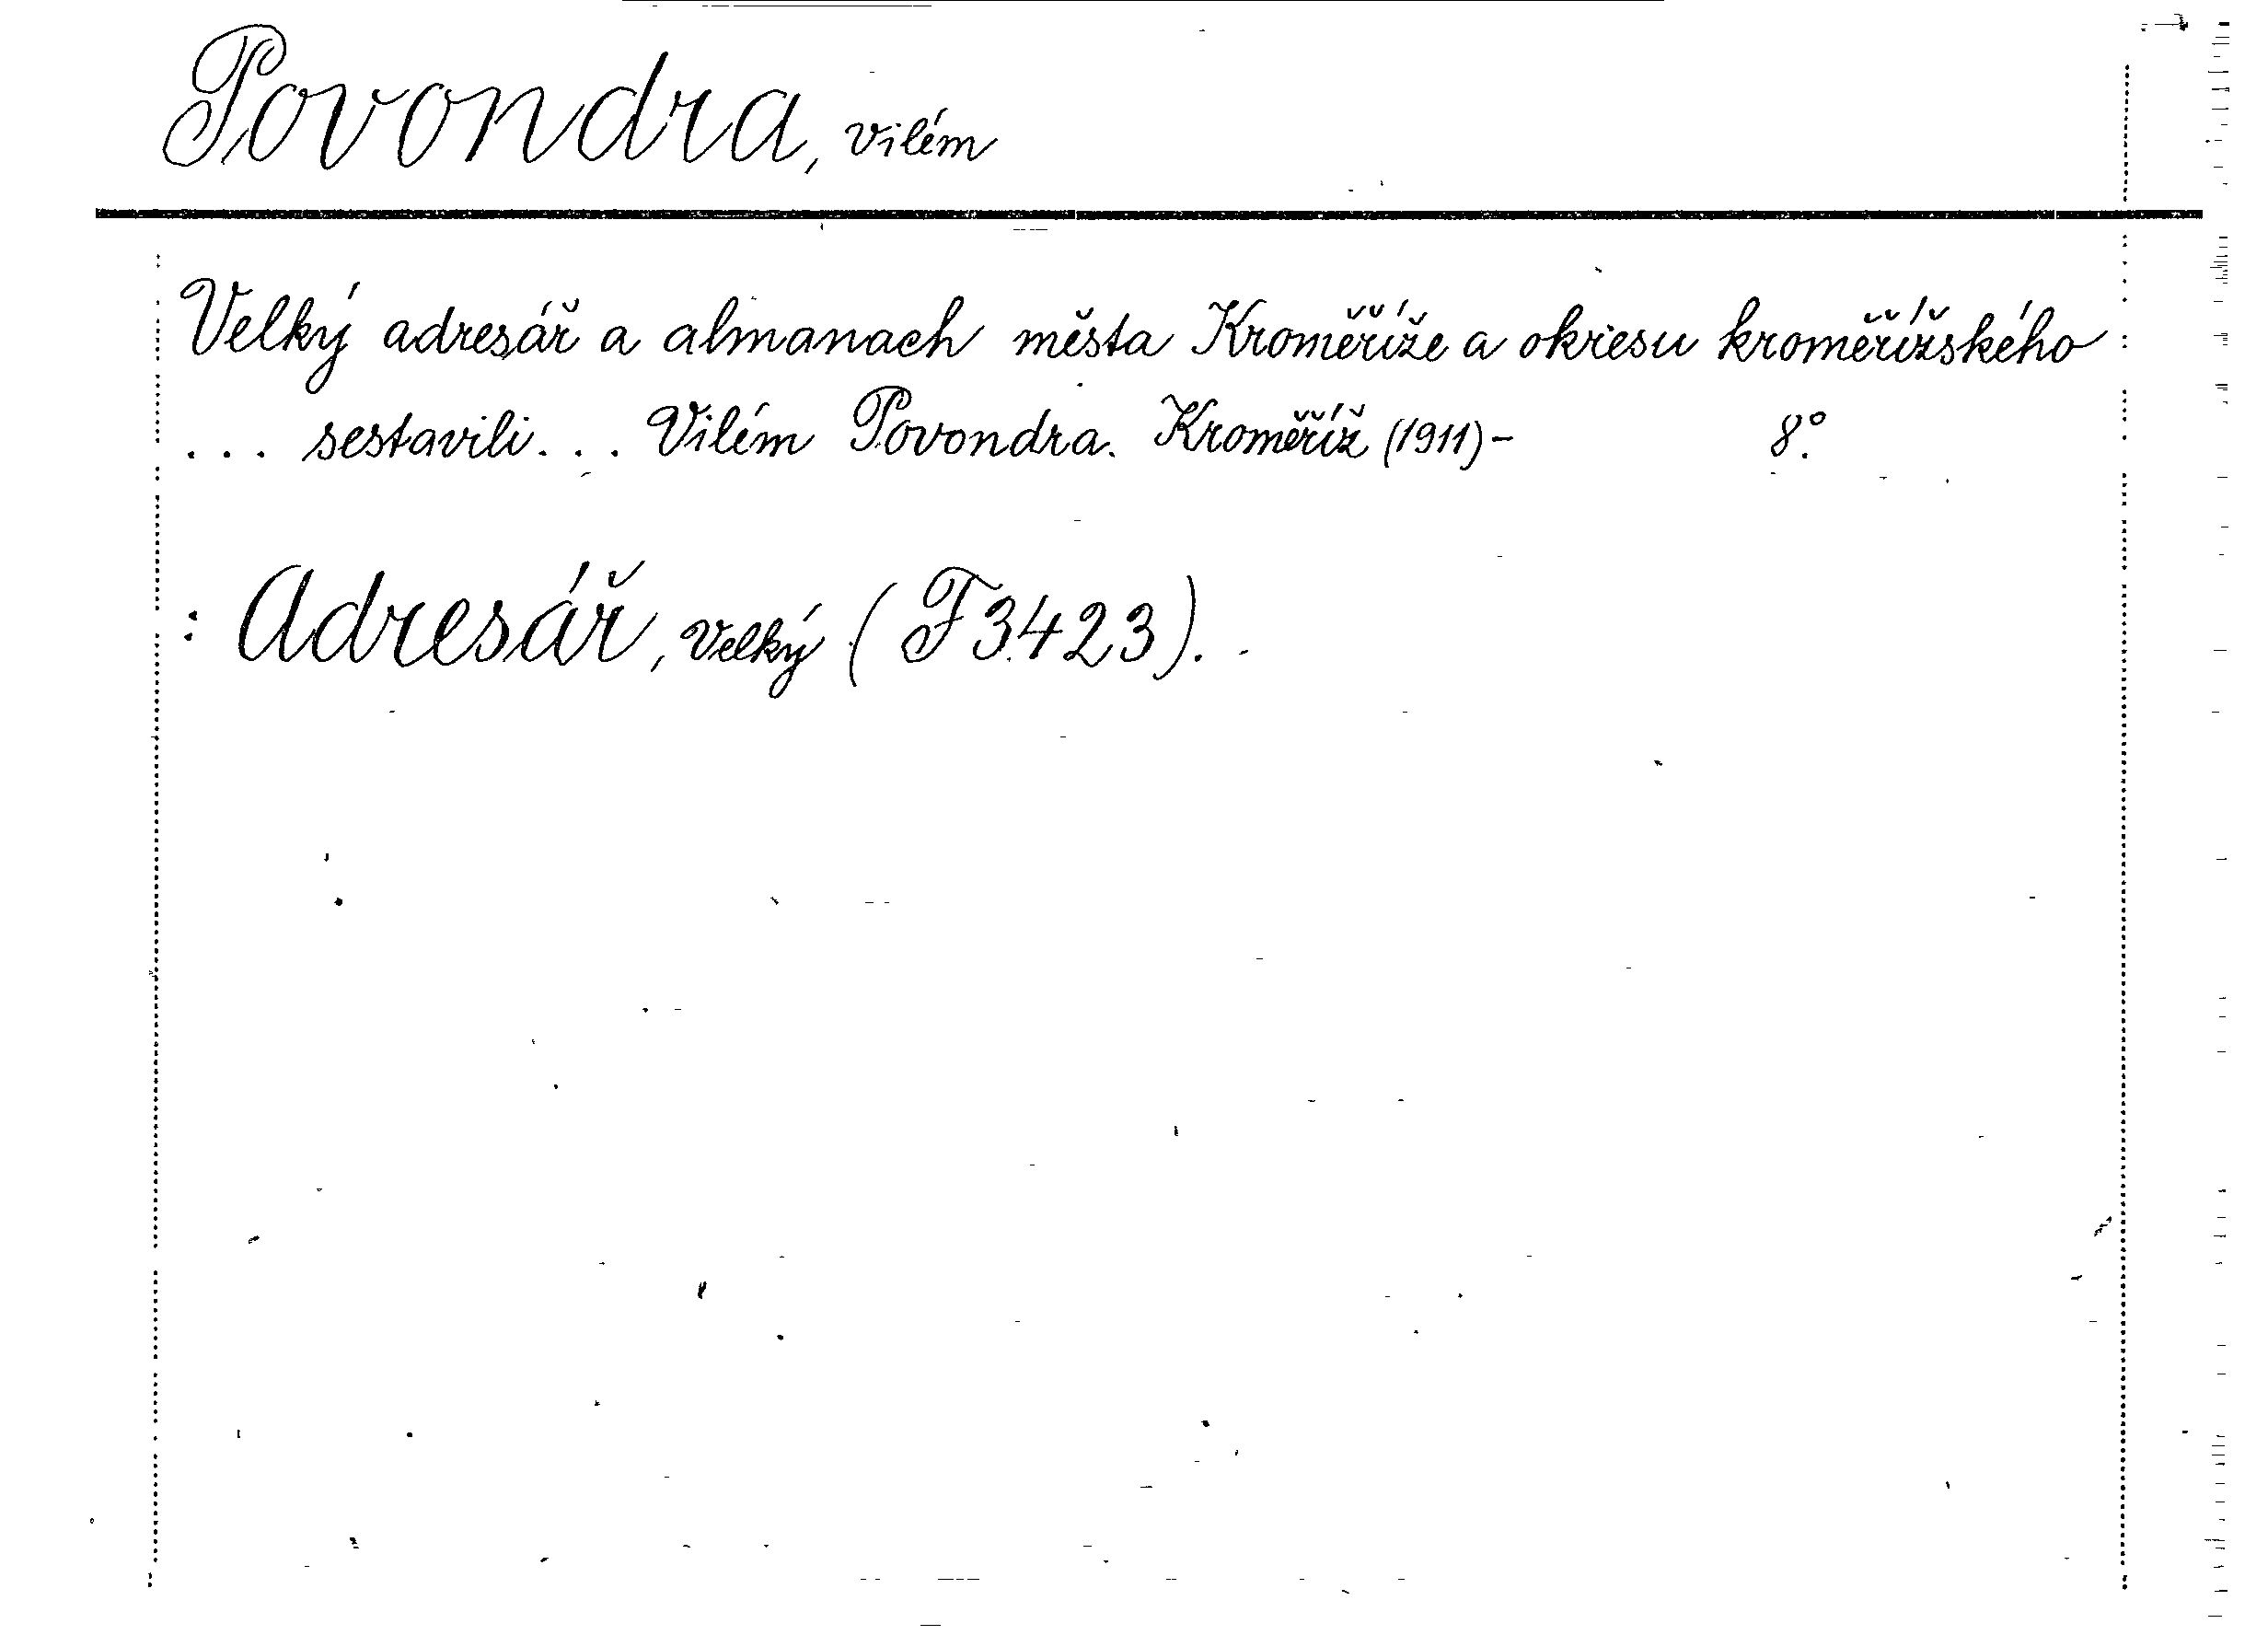 Povondra, Vilém
Velký adresář a almanach města Kroměříže a okresu kroměřížského
... sestavili... Vilém Povondra. Kroměříž (1911)- 8°.
: Adresář, Velký (F3423).